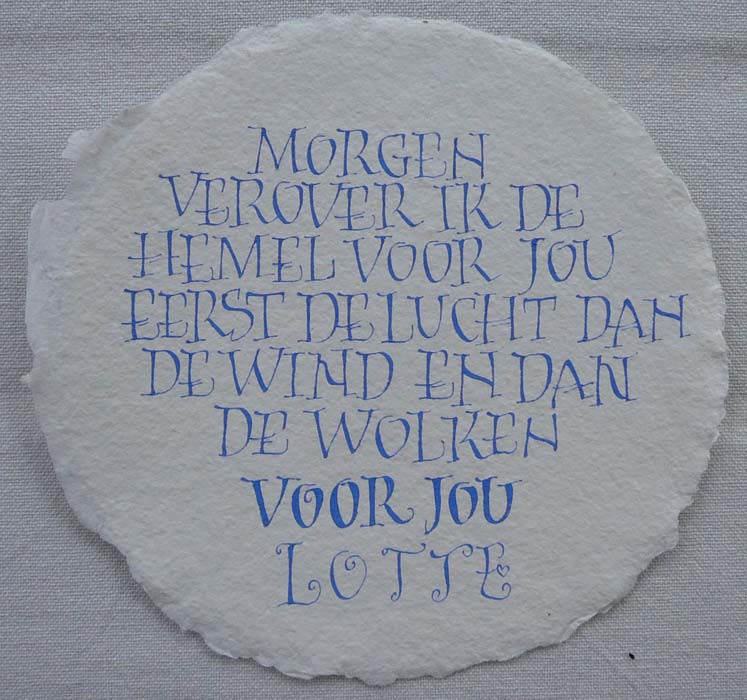 MORGEN
VEROVER IK DE
HEMEL VOOR JOU
EERST DE LUCHT DAN
DE WIND EN DAN
DE WOLKEN
VOOR JOU
LOTTE